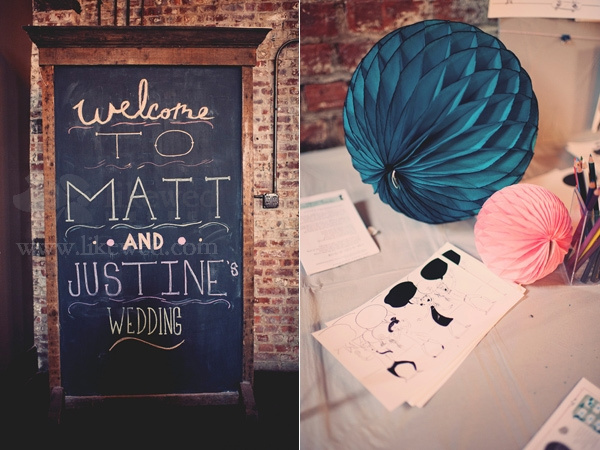 Welcome
TO
MATT
AND
JUSTINE's
WEDDING
www.likewed.com